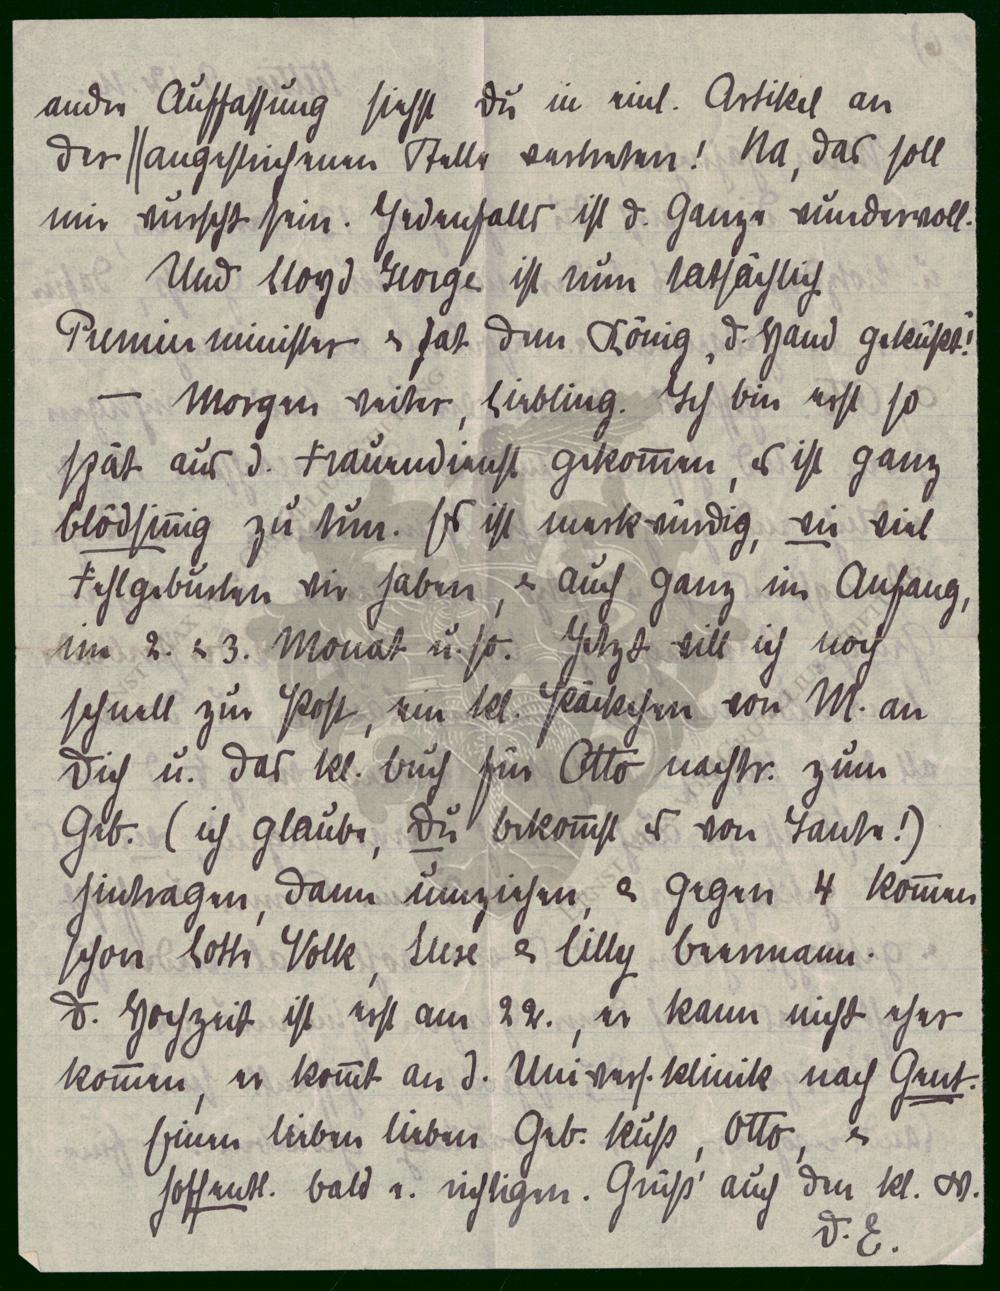 andre Auffassung siehst Du in einl. Artikel an
der || angestrichenen Stelle vertreten! Na, das soll
mir wurscht sein. Jedenfalls ist d. Ganze wundervoll.
Und Lloyd George ist nun tatsächlich
Premierminister & hat dem König d. Hand geküßt!
— Morgen weiter, Liebling. Ich bin erst so
spät aus d. Frauendienst gekom̄en, es ist ganz
blödsin̄ig zu tun. Es ist merkwürdig, wie viel
Fehlgeburten wir haben, & auch ganz im Anfang,
im 2. & 3. Monat u. so. Jetzt will ich noch
schnell zur Post, ein kl. Päckchen von M. an
Dich u. das kl. Buch für Otto nachtr. zum
Geb. (ich glaube, Du bekom̄st es von Tante!)
hintragen, dann umziehen, & gegen 4 kom̄en
schon Lotte Volk, Liese & Cilly Beermann.
D. Hochzeit ist erst am 22., er kann nicht eher
kom̄en, er kom̄t an d. Univers. klinik nach Gent.
Einen lieben lieben Geb. kuß, Otto, &
hoffentl. bald e. richtigen. Grüß' auch den kl. W.
D. E.